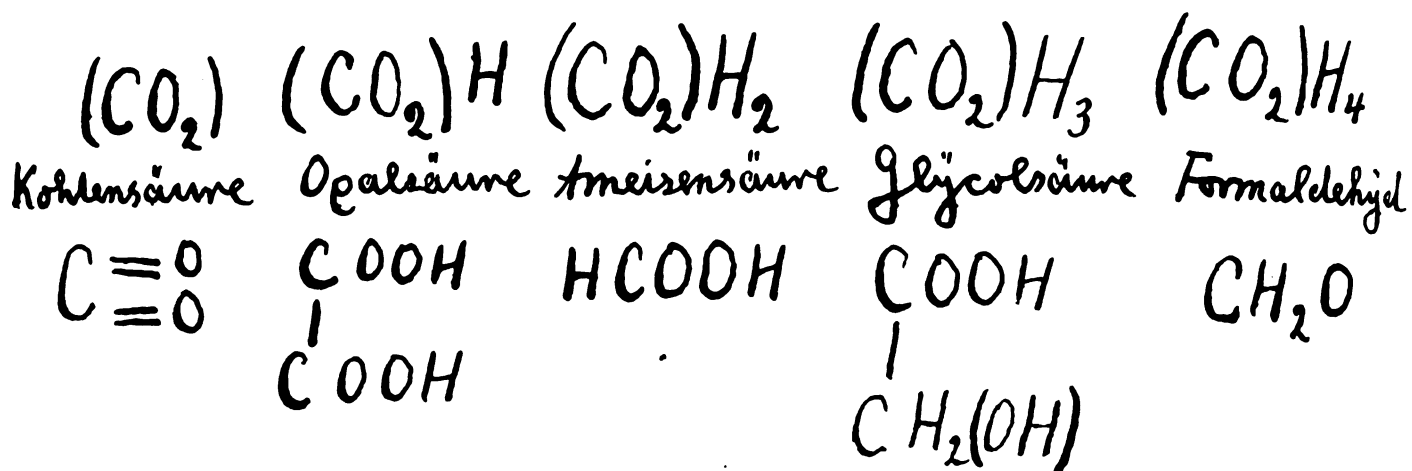 (CO₂) (CO₂)H (CO₂)H₂ (CO₂)H₃ (CO₂)H₄
Kohlensäure Oxalsäure Ameisensäure Glÿcolsäure Formaldehÿd
C=O COOH HCOOH COOH CH₂O
=O
COOH CH₂(OH)